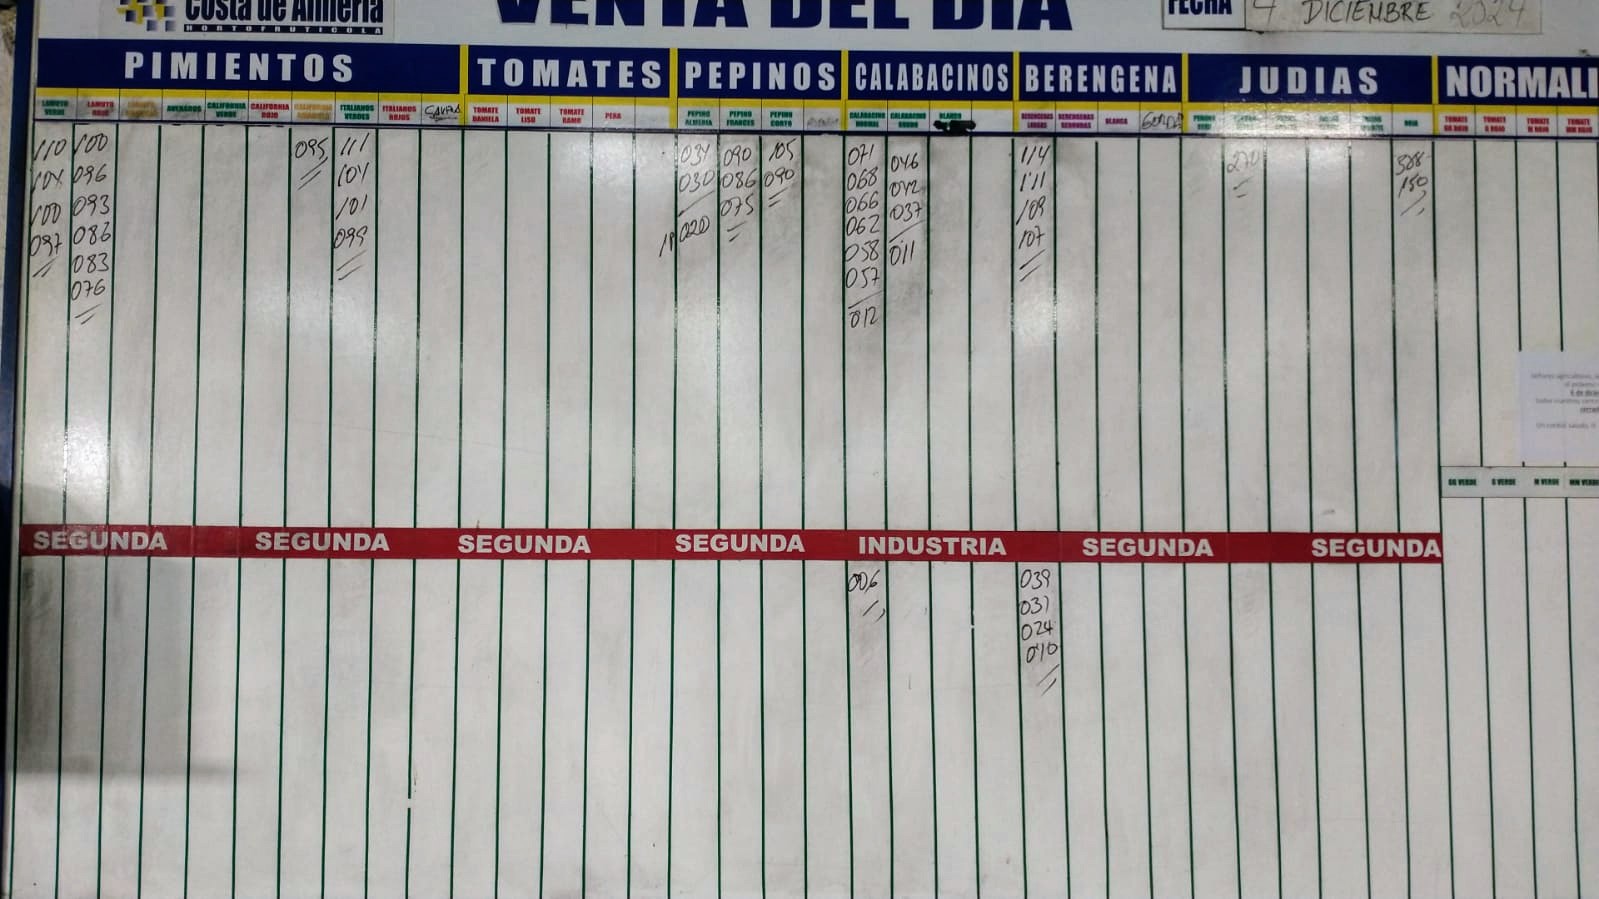 Costa de Almería
HORTOFRUTICOLA
VENTA DEL DIA
FECHA
4 DICIEMBRE 2024
PIMIENTOS TOMATES PEPINOS CALABACINOS BERENGENA JUDIAS NORMALI
LAMUYO VERDE
LAMUYO ROJO
CALIFORNIA VERDE
CALIFORNIA ROJO
CALIFORNIA AMARILLO
ITALIANOS VERDES
ITALIANOS ROJOS
TOMATE DANIELA
TOMATE LISO
TOMATE RAMO
PERA
PEPINO ALMERIA
PEPINO FRANCES
PEPINO CORTO
CALABACINO NORMAL
CALABACINO GORDO
BLANCO
BERENGENAS LARGAS
BERENGENAS REDONDAS
BLANCA
ROJA
TOMATE GG ROJO
TOMATE G ROJO
TOMATE M ROJO
TOMATE MM ROJO
110
104
100
097
100
096
093
086
083
076
095
111
104
101
099
034
030
020
090
086
075
105
090
071
068
066
062
058
057
012
046
042
037
011
114
111
109
107
270
150
GG VERDE
G VERDE
M VERDE
MM VERDE
SEGUNDA SEGUNDA SEGUNDA SEGUNDA INDUSTRIA SEGUNDA SEGUNDA
006
039
031
024
010